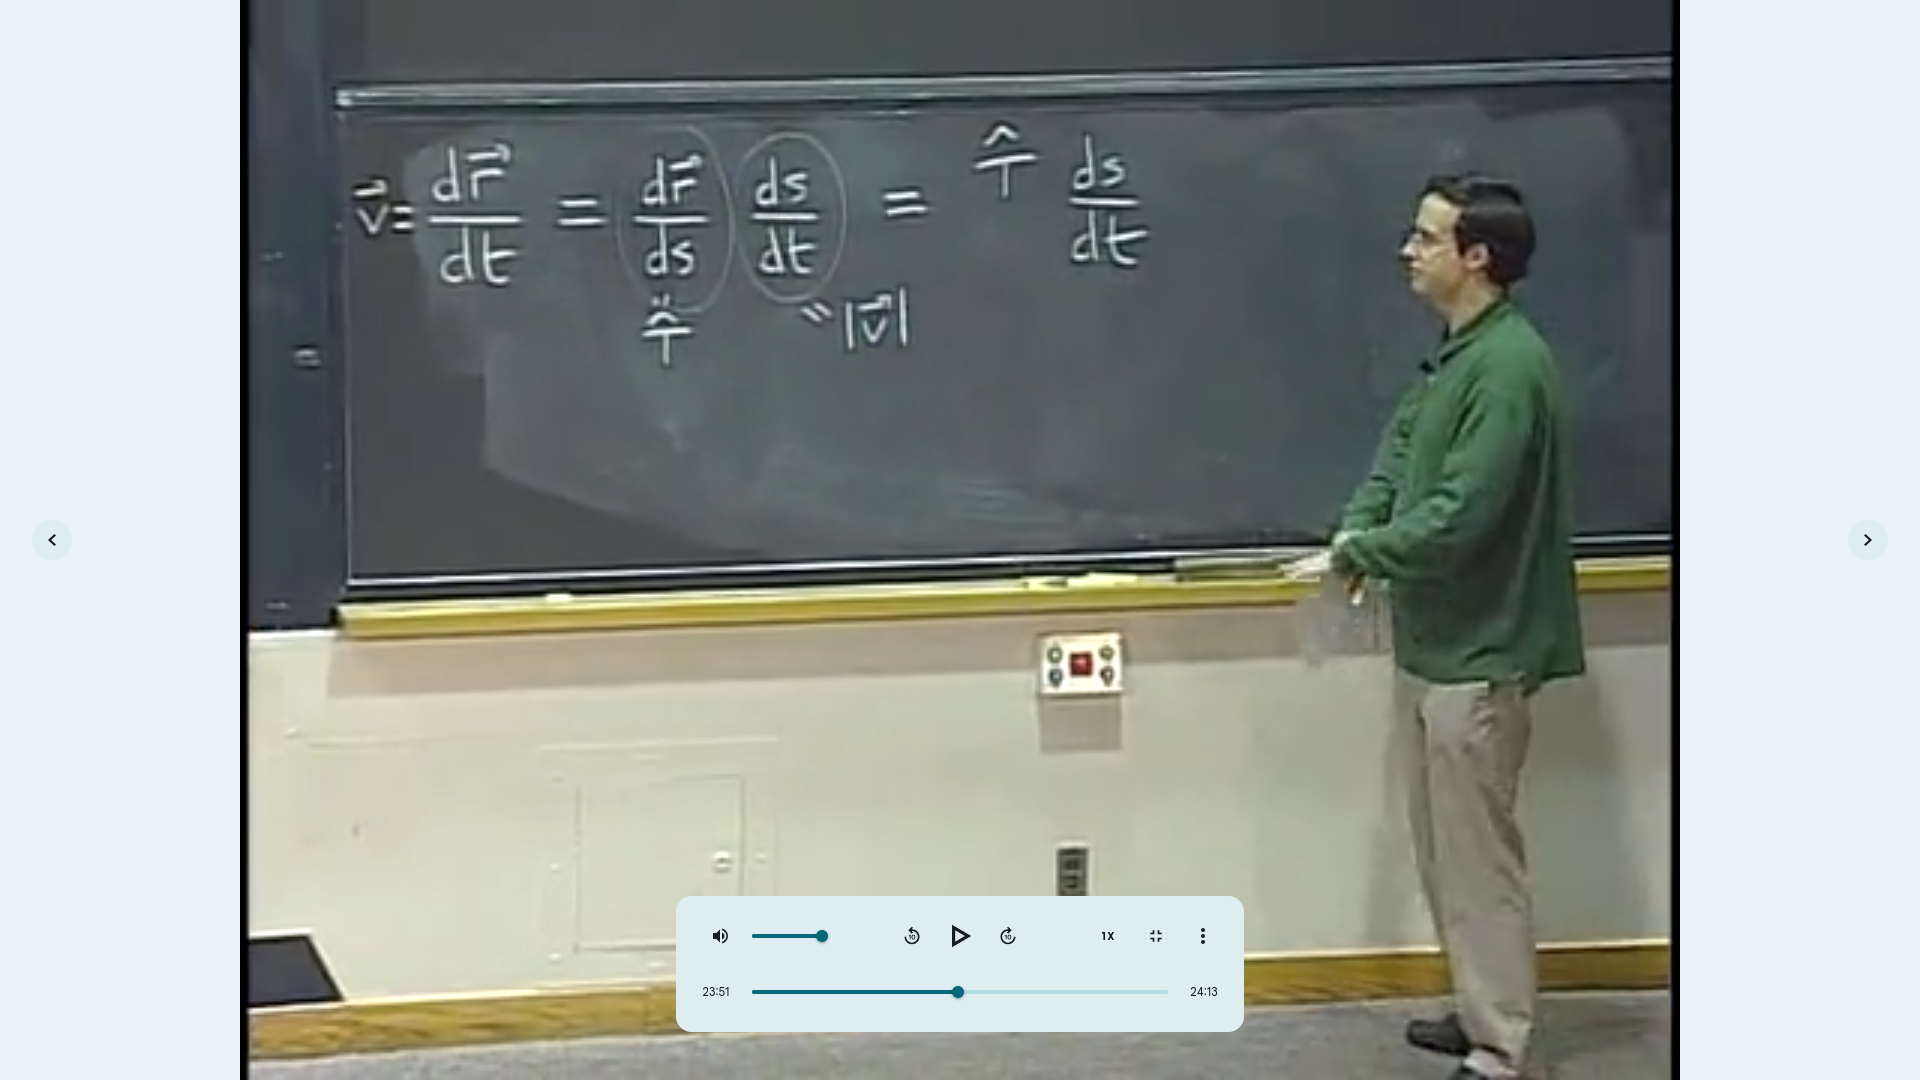 v⃗ = dr⃗/dt = dr⃗/ds ds/dt = T̂ ds/dt
= T̂ = |v⃗|
10 10 1X
23:51 24:13